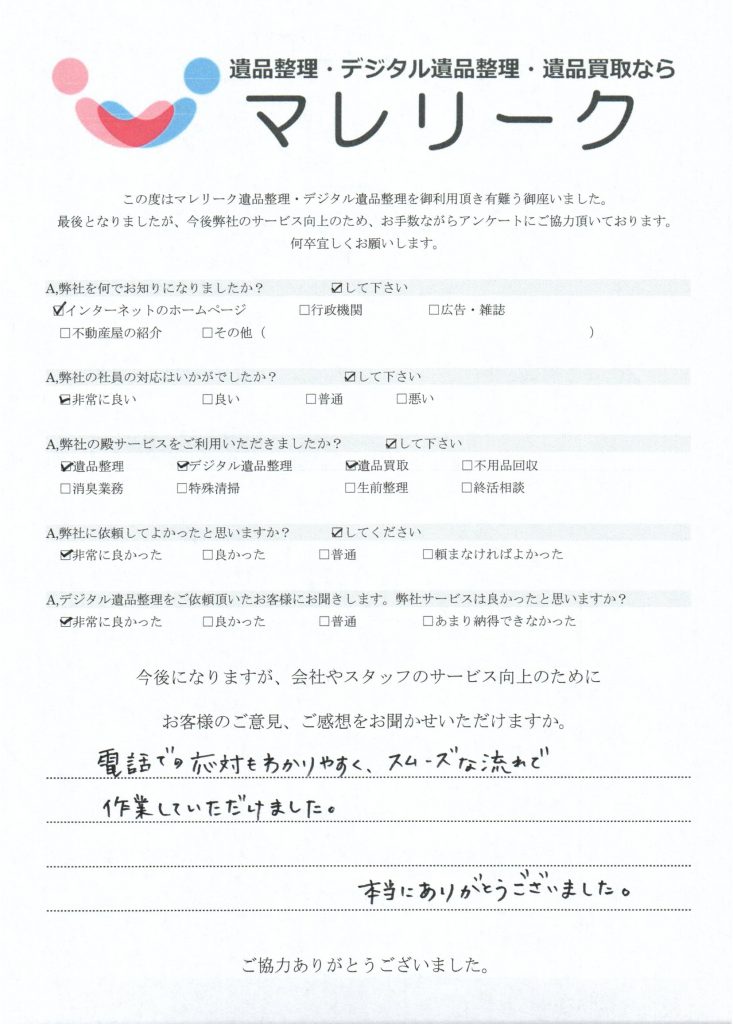 遺品整理・デジタル遺品整理・遺品買取なら
マレリーク
この度はマレリーク遺品整理・デジタル遺品整理を御利用頂き有難う御座いました。
最後となりましたが、今後弊社のサービス向上のため、お手数ながらアンケートにご協力頂いております。
何卒宜しくお願いします。
A,弊社を何でお知りになりましたか？ ☑して下さい
☑インターネットのホームページ □行政機関 □広告・雑誌
□不動産屋の紹介 □その他（ ）
A,弊社の社員の対応はいかがでしたか？ ☑して下さい
☑非常に良い □良い □普通 □悪い
A,弊社の殿サービスをご利用いただきましたか？ ☑して下さい
☑遺品整理 ☑デジタル遺品整理 ☑遺品買取 □不用品回収
□消臭業務 □特殊清掃 □生前整理 □終活相談
A,弊社に依頼してよかったと思いますか？ ☑してください
☑非常に良かった □良かった □普通 □頼まなければよかった
A,デジタル遺品整理をご依頼頂いたお客様にお聞きします。弊社サービスは良かったと思いますか？
☑非常に良かった □良かった □普通 □あまり納得できなかった
今後になりますが、会社やスタッフのサービス向上のために
お客様のご意見、ご感想をお聞かせいただけますか。
電話での応対もわかりやすく、スムーズな流れで
作業していただけました。
本当にありがとうございました。
ご協力ありがとうございました。